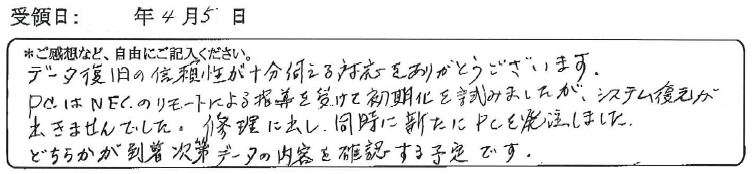 受領日： 年 4 月 5 日
*ご感想など、自由にご記入ください。
データ復旧の信頼性が十分伺える対応をありがとうございます。
PCはNECのリモートによる指導を受けて初期化を試みましたが、システム復元が
出きませんでした。修理に出し、同時に新たにPCを発注しました。
どちらかが到着次第データの内容を確認する予定です。